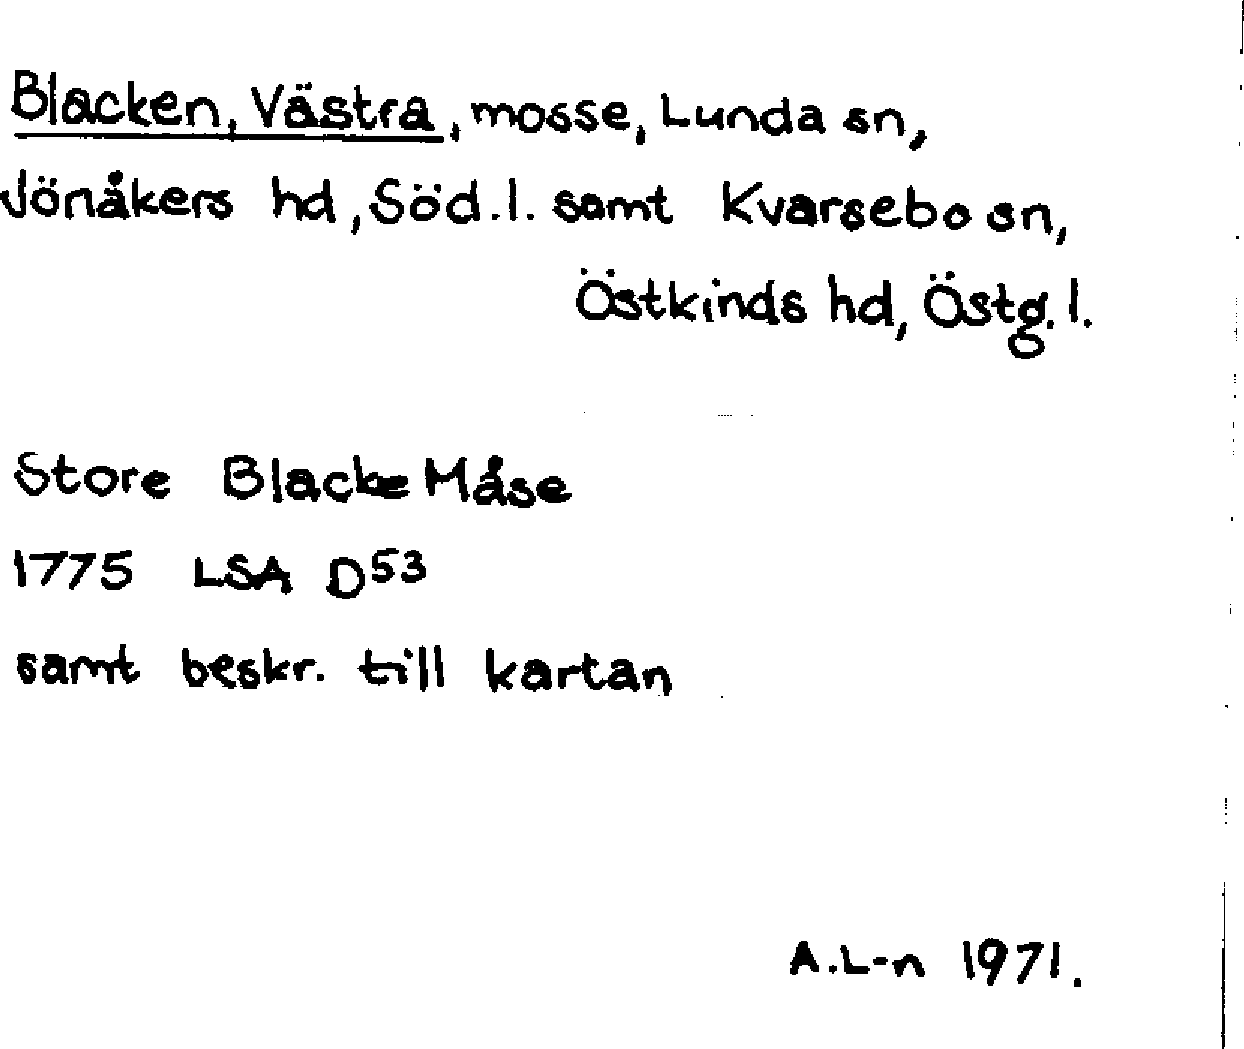 Blacken, Västra, mosse, Lunda sn,
Jönåkers hd, Söd.l. samt Kvarsebo sn,
Östkinds hd, Östg.l.
Store Blacke Måse
1775 LSA D53
samt beskr. till kartan
A.L-n 1971.